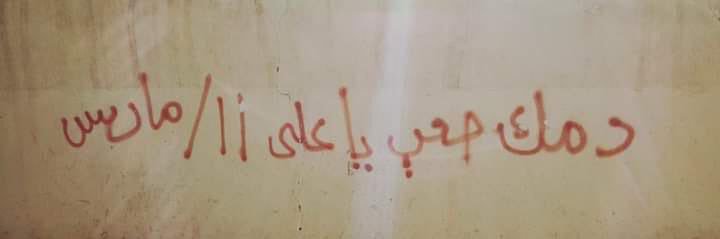 دمك صعب يا على ١١/مارس